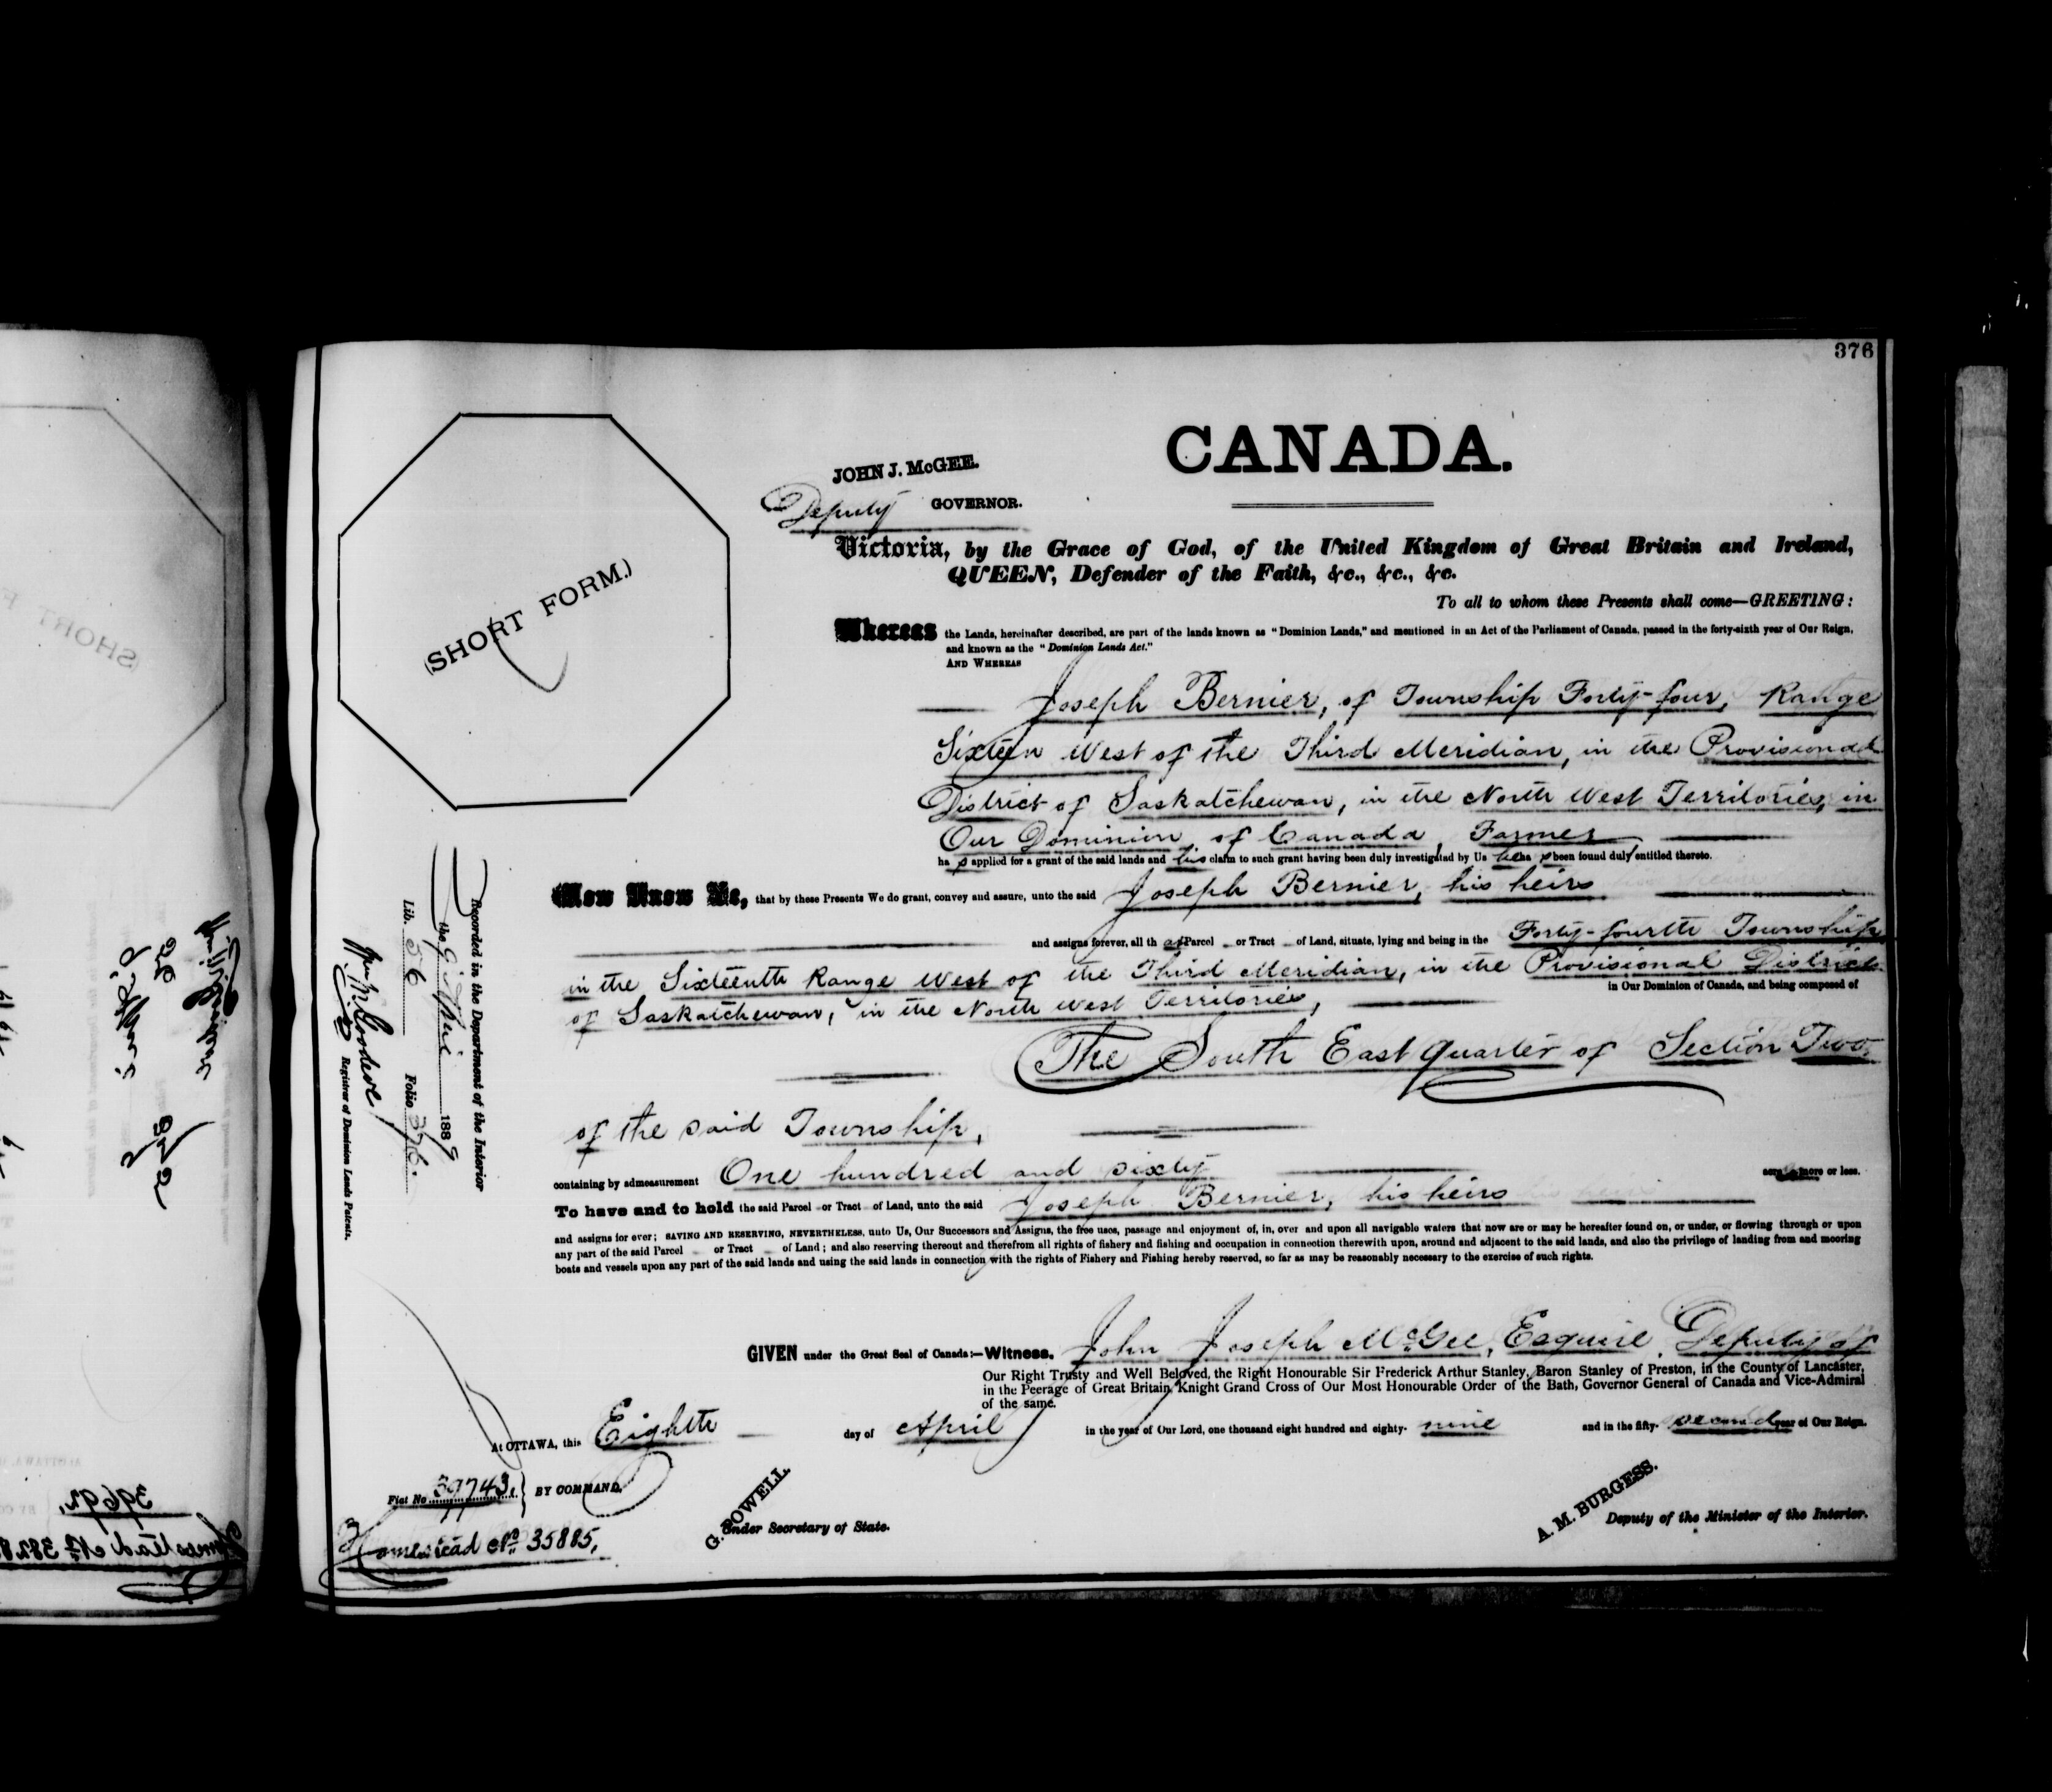 376
CANADA.
JOHN J. McGEE.
Deputy GOVERNOR.
Victoria, by the Grace of God, of the United Kingdom of Great Britain and Ireland,
QUEEN, Defender of the Faith, &c., &c., &c.
To all to whom these Presents shall come—GREETING:
(SHORT FORM.)
Whereas the Lands, hereinafter described, are part of the lands known as "Dominion Lands," and mentioned in an Act of the Parliament of Canada, passed in the forty-sixth year of Our Reign,
and known as the "Dominion Lands Act."
AND WHEREAS
Joseph Bernier, of Township Forty-four, Range
Sixteen West of the Third Meridian, in the Provisional
District of Saskatchewan, in the North West Territories, in
Our Dominion of Canada, Farmer
has applied for a grant of the said lands and his claim to such grant having been duly investigated by Us he has been found duly entitled thereto.
Now Know Ye, that by these Presents We do grant, convey and assure, unto the said Joseph Bernier, his heirs
and assigns forever, all that Parcel or Tract of Land, situate, lying and being in the Forty-fourth Township
in the Sixteenth Range West of the Third Meridian, in the Provisional District
of Saskatchewan, in the North West Territories, in Our Dominion of Canada, and being composed of
The South East quarter of Section Two
of the said Township,
containing by admeasurement One hundred and sixty acres more or less.
To have and to hold the said Parcel or Tract of Land, unto the said Joseph Bernier, his heirs
and assigns for ever; SAVING AND RESERVING, NEVERTHELESS, unto Us, Our Successors and Assigns, the free uses, passage and enjoyment of, in, over and upon all navigable waters that now are or may be hereafter found on, or under, or flowing through or upon
any part of the said Parcel or Tract of Land; and also reserving thereout and therefrom all rights of fishery and fishing and occupation in connection therewith upon, around and adjacent to the said lands, and also the privilege of landing from and mooring
boats and vessels upon any part of the said lands and using the said lands in connection with the rights of Fishery and Fishing hereby reserved, so far as may be reasonably necessary to the exercise of such rights.
GIVEN under the Great Seal of Canada:—Witness, John Joseph McGee, Esquire, Deputy of
Our Right Trusty and Well Beloved, the Right Honourable Sir Frederick Arthur Stanley, Baron Stanley of Preston, in the County of Lancaster,
in the Peerage of Great Britain, Knight Grand Cross of Our Most Honourable Order of the Bath, Governor General of Canada and Vice-Admiral
of the same.
At OTTAWA, this Eighth day of April in the year of Our Lord, one thousand eight hundred and eighty-nine and in the fifty-second year of Our Reign.
Fiat No 39743, BY COMMAND,
G. POWELL
Under Secretary of State.
A. M. BURGESS.
Deputy of the Minister of the Interior.
Homestead No. 35885,
Recorded in the Department of the Interior
the 1889
Lib. 56 Folio 376.
Registrar of Dominion Lands Patents.
(SHORT F
39692,
Homestead No. 382